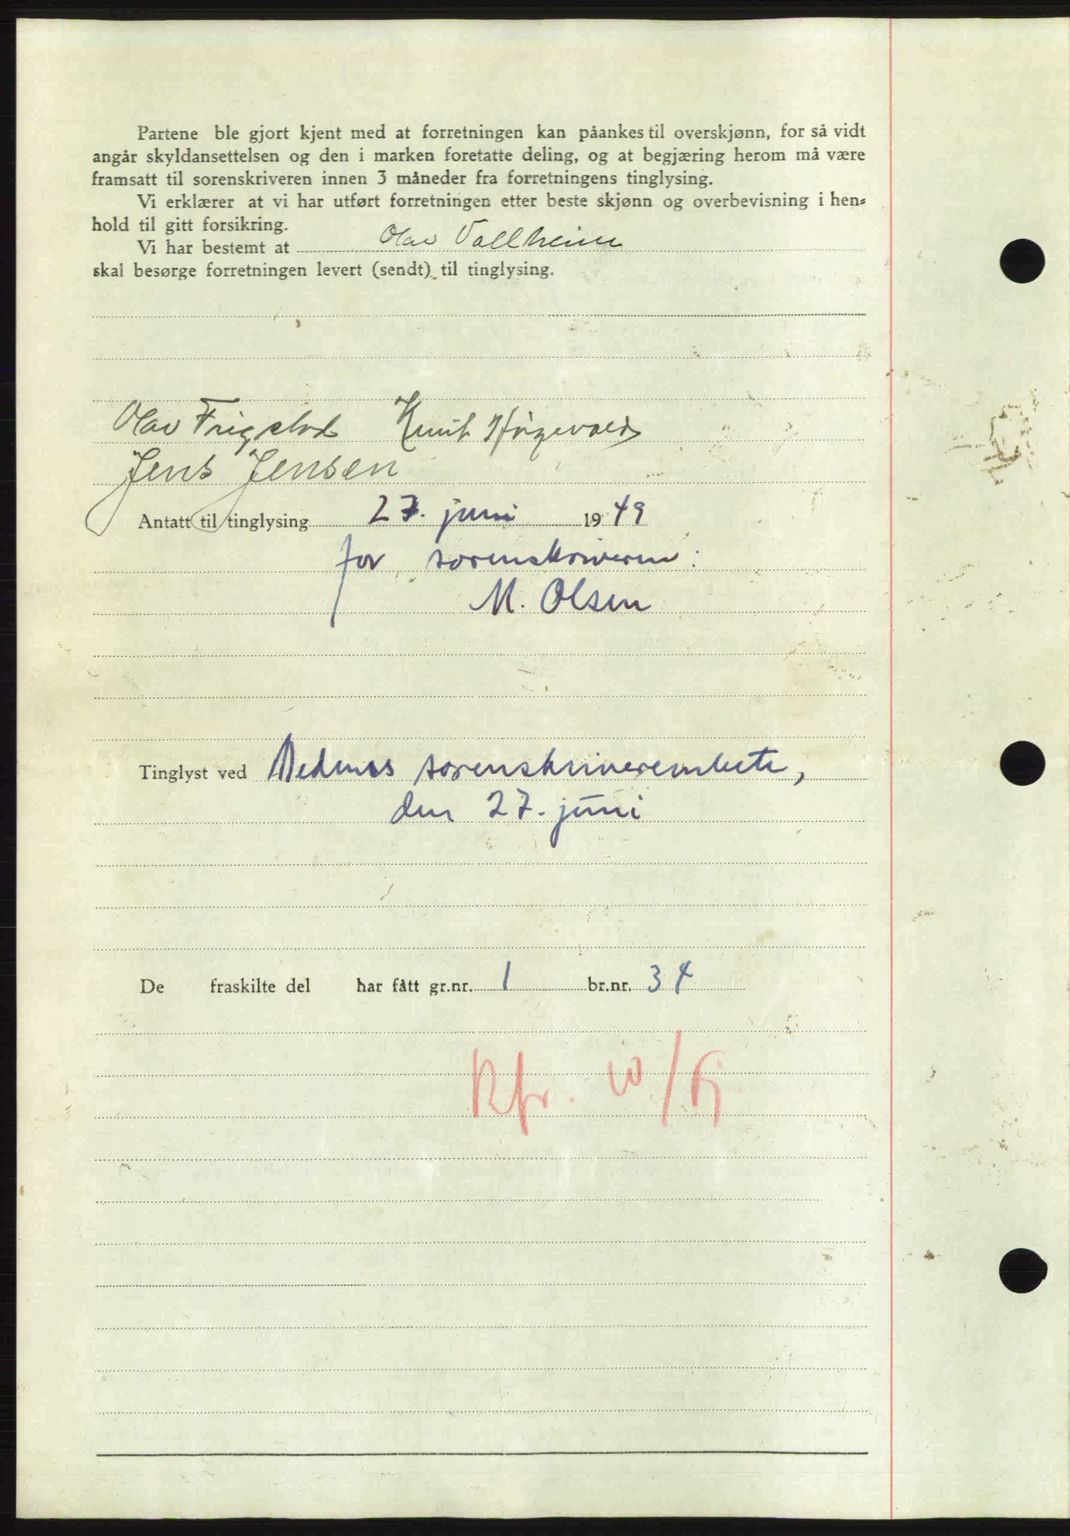 Partene ble gjort kjent med at forretningen kan påankes til overskjønn, for så vidt
angår skyldansettelsen og den i marken foretatte deling, og at begjæring herom må være
framsatt til sorenskriveren innen 3 måneder fra forretningens tinglysing.
Vi erklærer at vi har utført forretningen etter beste skjønn og overbevisning i hen-
hold til gitt forsikring.
Vi har bestemt at Olav Vallheim
skal besørge forretningen levert (sendt) til tinglysing.
Olav Frigstad Knut
Jens Jensen
Antatt til tinglysing 27. juni 1949
for sorenskriveren:
M. Olsen
Tinglyst ved Nedenes sorenskriverembete,
den 27. juni
De fraskilte del har fått gr.nr. 1 br.nr. 34